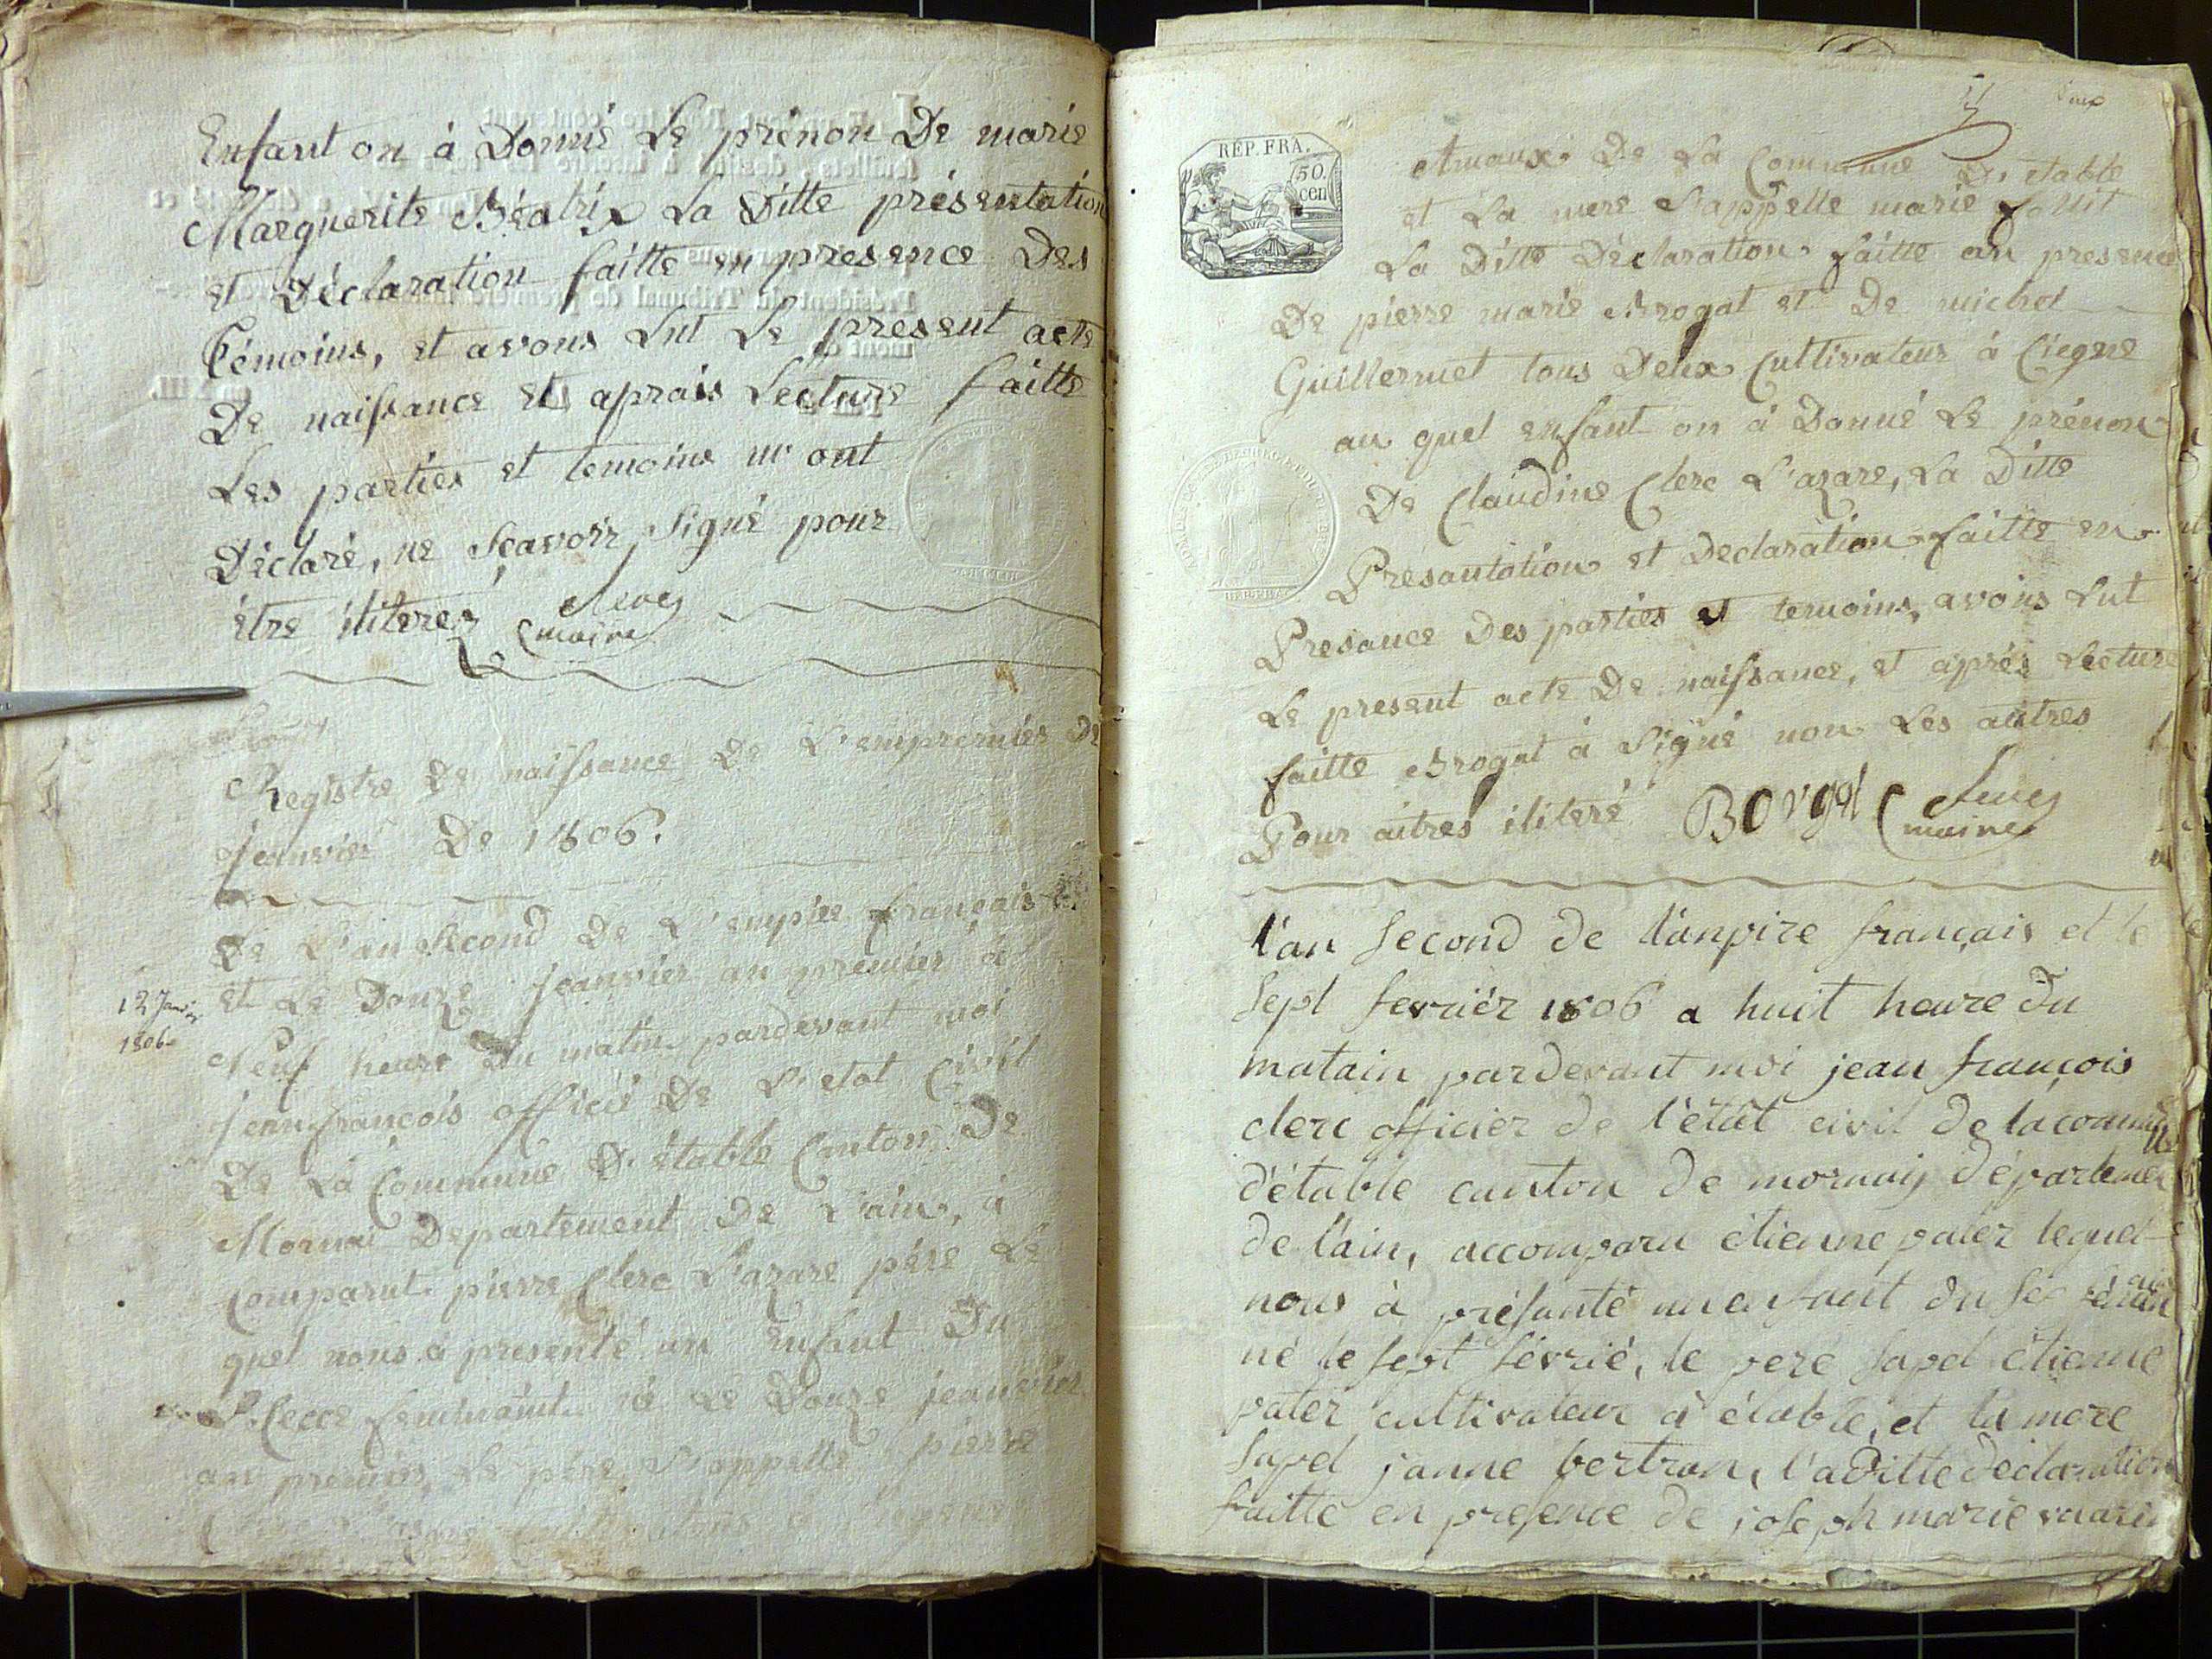 Enfant on à Donné Le prénon De marie
Marguerite Béatrix La Ditte présentation
et Déclaration faitte en presence Des
Témoins, et avons Lut Le present acte
De naissance et aprais Lecture faitte
Les parties et temoins m'ont
Déclaré, ne sçavoir Signé pour
être iliteré Clerc
maire
Registre De naissance De L'empremier De
Jeanvier De 1806.
De L'an Second De L'empire français
12 Janvier
et Le Douze Jeanvier an premier à
1806
Neuf heure Du matin pardevant moi
Jean françois officié De L'etat Civil
De La Commune D'étable Canton De
Mornai Departement De L'ain, à
Comparut pierre Clerc L'azare pére Le
quel nous à presenté un Enfant Du
Secce feminaint né Le Douze jeanvier
an premier, Le pére S'appelle pierre
REP. FRA.
50.
cen
De La Commune D'etable
et La mere S'appelle marie
La Ditte Déclaration faitte an presence
De pierre marie Brogat et De michel
Guillermet tous Deux Cultivateur à Ciegne
au quel enfant on à Donné Le prénon
De Claudine Clerc L'azare, La Ditte
Presantation et Declaration faitte en
Presance Des parties et temoins, avons Lut
Le present acte De naissance, et aprés Lecture
faitte Brogat à Signé non Les autres
Pour aitres iliteré Borgat Clerc
maire
l'an second de l'anpire français et le
sept fevriér 1806 a huit heure du
matain pardevant moi jean françois
clerc officier de l'étât civil de la commune
d'étable canton de mornay département
de l'ain, accomparu étienne pater lequel
nous à présanté un enfant du sec
né le sept févrié, le pere sapel étienne
pater cultivateur à étable, et la mere
sapel janne bertran, l'aditte déclaration
faitte en presence de joseph marie